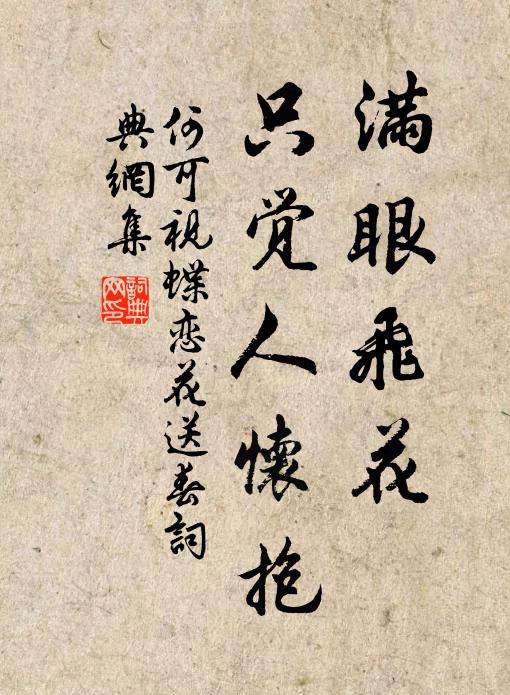 满眼飛花
只觉人懷抱
何可視蝶恋花送春詞
典網集
詞典网印